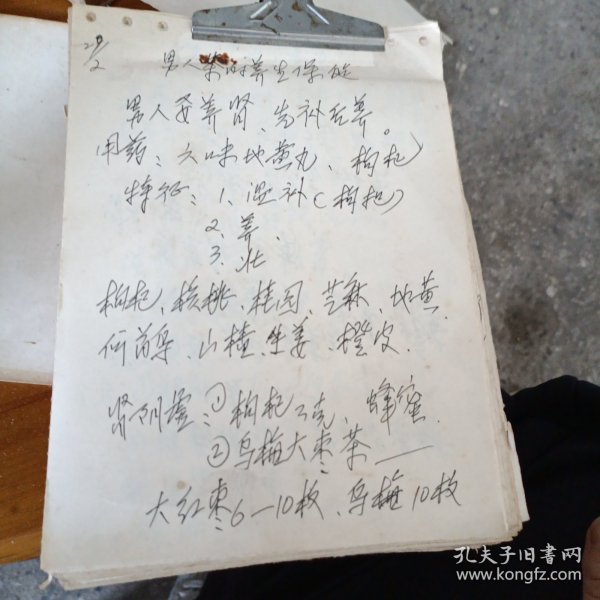 29/2
男人茶的养生保健
男人要养肾、先补后养。
用药:六味地黄丸、枸杞
特征:1、温补(枸杞)
2、养、
3、壮
枸杞、核桃、桂圆、芝麻、地黄、
何首乌、山楂、生姜、橙皮、
肾阴虚:①枸杞 克、蜂蜜、
②乌梅大枣茶——
大红枣6—10枚、乌梅10枚
孔夫子旧书网
www.kongfz.com